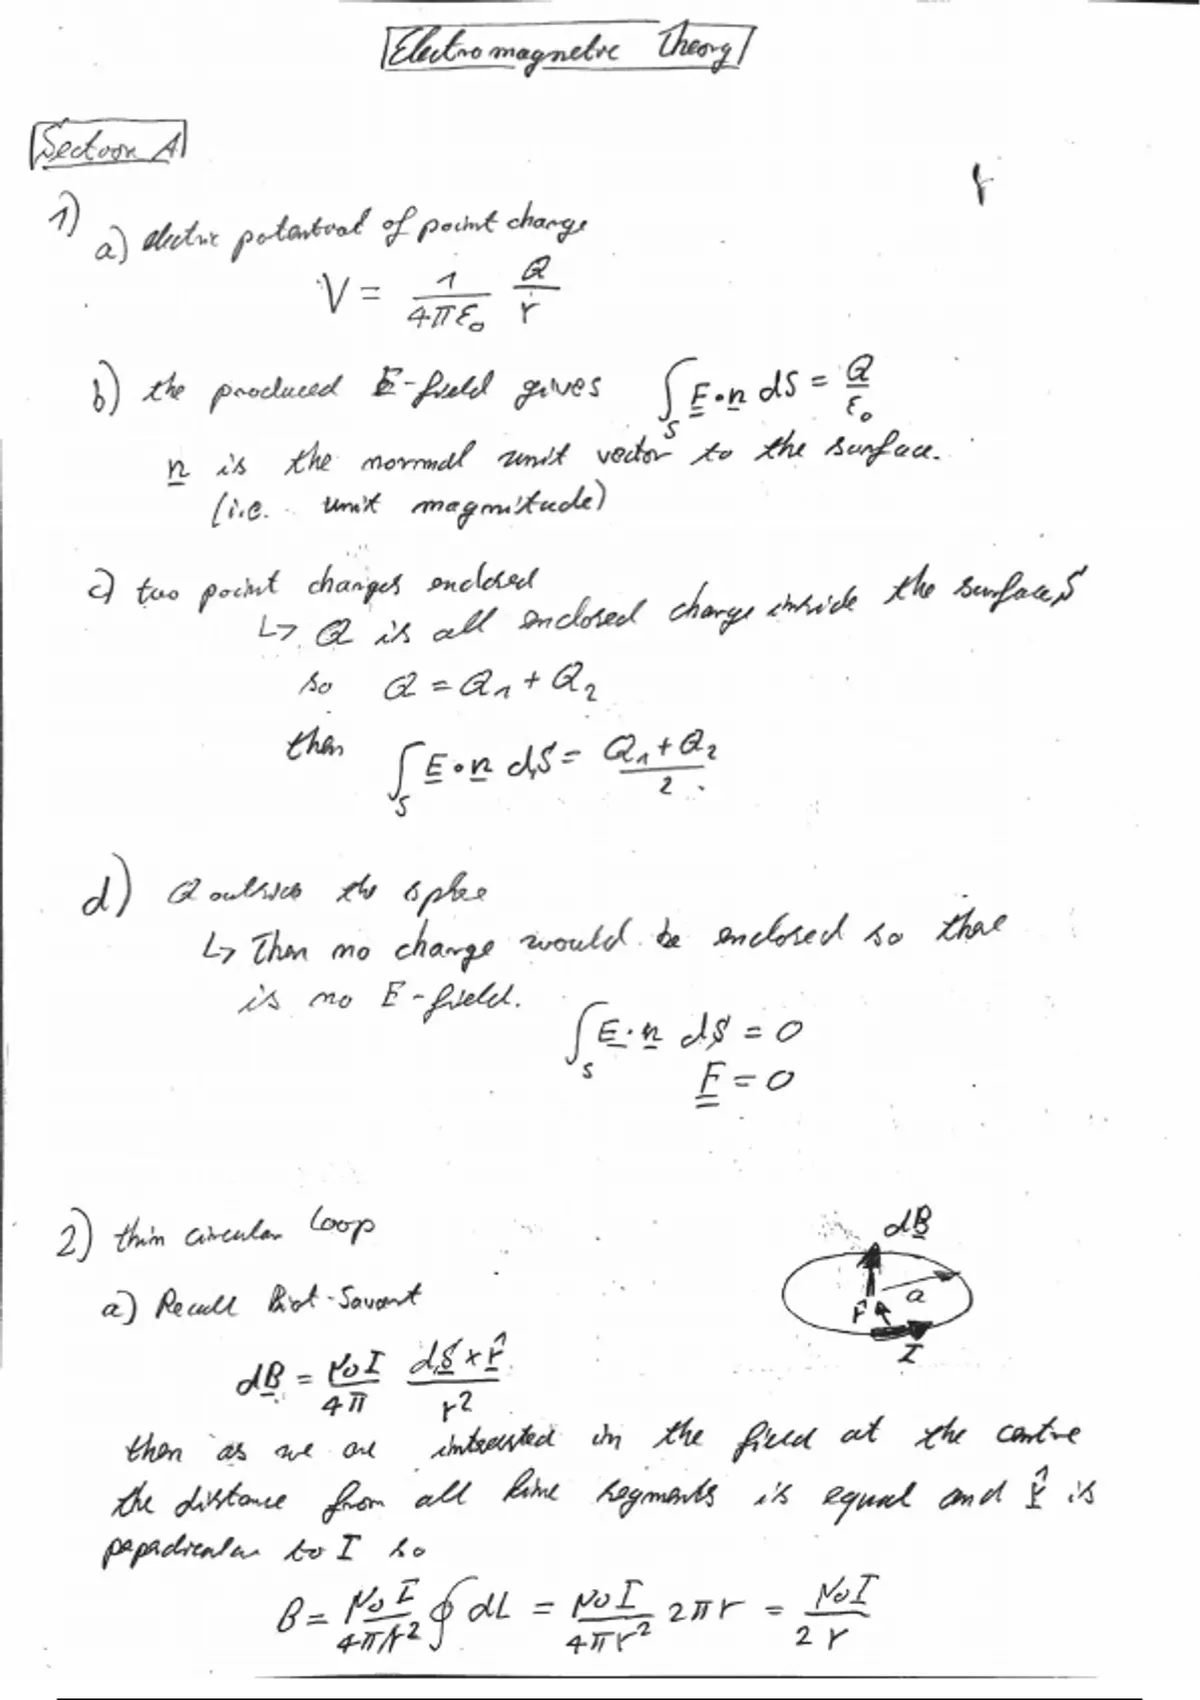 Electromagnetic Theory
Section A
1)
a) electric potential of point charge
V = 1/4πε₀ Q/r
b) the produced E-field gives ∫_S E·n dS = Q/ε₀
n is the normal unit vector to the surface.
(i.e. unit magnitude)
c) two point charges enclosed
↳ Q is all enclosed charge inside the surface S
so Q = Q₁ + Q₂
then ∫_S E·n dS = Q₁+Q₂/2.
d) Q outside the sphere
↳ Then no charge would be enclosed so there
is no E-field.
∫_S E·n dS = 0
E = 0
2) thin circular loop
dB
a
r̂
I
a) Recall Biot-Savart
dB = μ₀I/4π dS × r̂/r²
then as we are interested in the field at the centre
the distance from all line segments is equal and r̂ is
pependicular to I so
B = μ₀I/4πr² ∮ dL = μ₀I/4πr² 2πr = μ₀I/2r